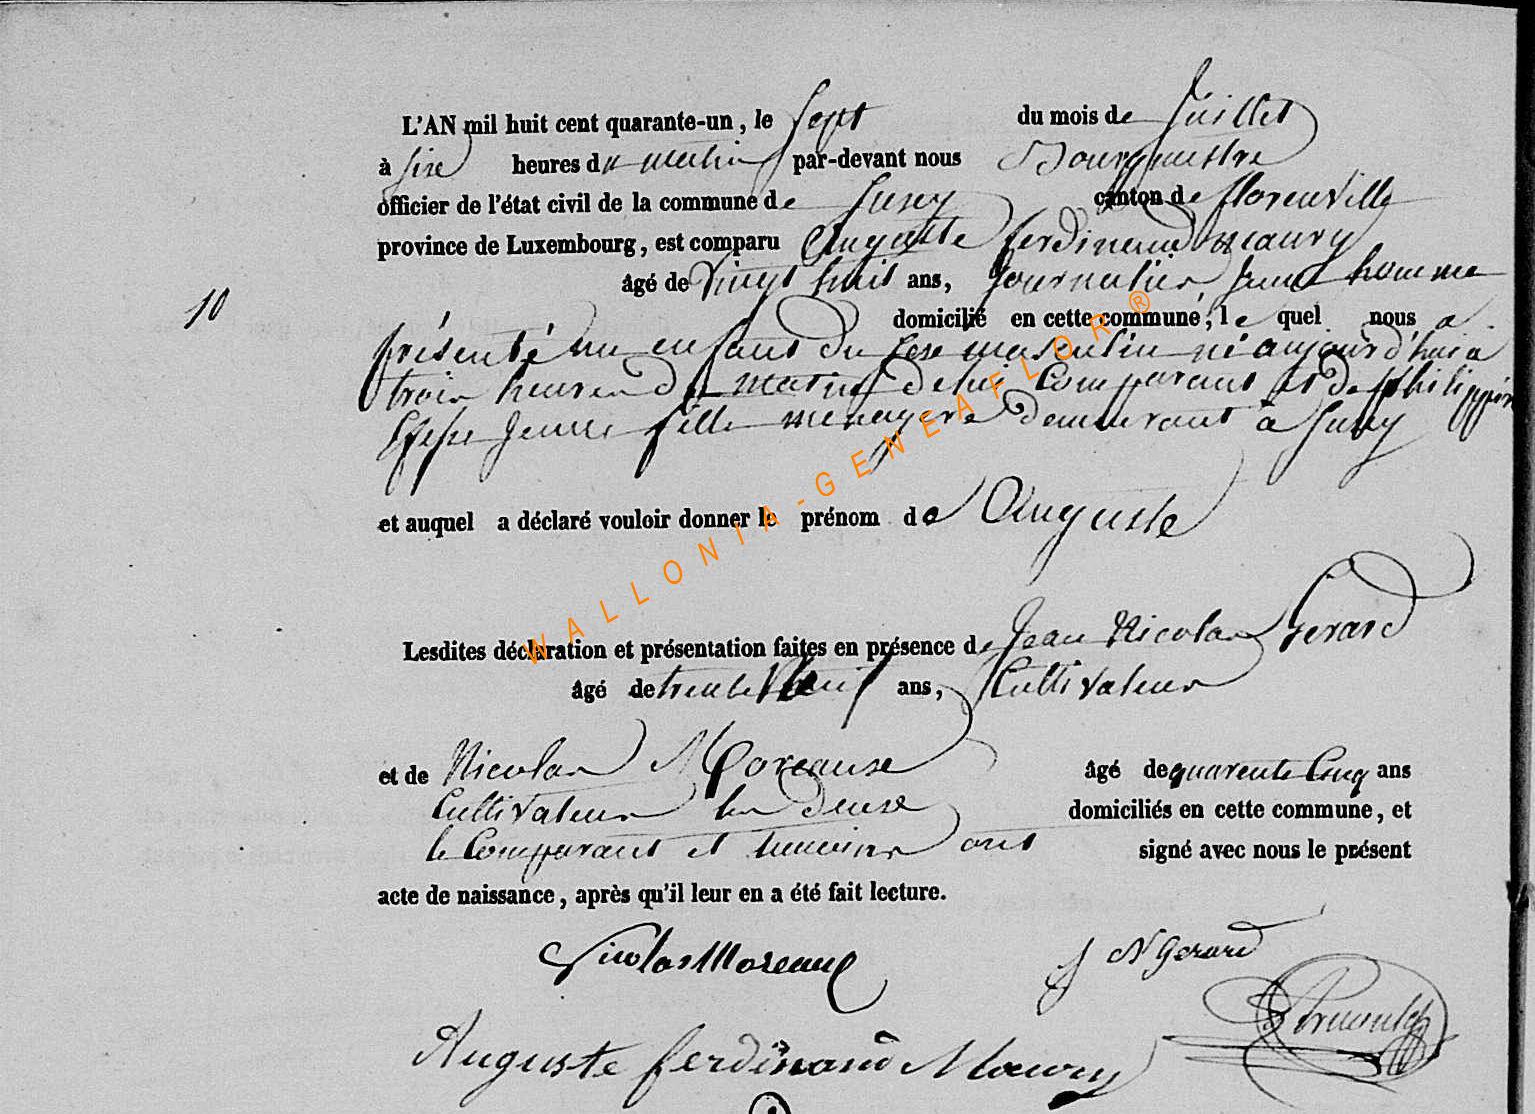 L'AN mil huit cent quarante-un, le Sept du mois de Juillet
à Sixe heures du matin par-devant nous Bourgmestre
officier de l'état civil de la commune de Suxy canton de florenville
province de Luxembourg, est comparu Auguste ferdinand maury
âgé de vingt huit ans, Journalier Jeune homme
10
domicilié en cette commune, le quel nous a
présenté un enfant du sexe masculin né aujourd'hui a
trois heures du matin de lui Comparant et de philippine
Jeune fille menagere demeurant à Suxy
et auquel a déclaré vouloir donner le prénom de Auguste
Lesdites déclaration et présentation faites en présence de Jean Nicolas Gerard
âgé de trente huit ans, Cultivateur
et de Nicolas Moreaux âgé de quarente Cinq ans
Cultivateur les deux domiciliés en cette commune, et
le Comparant et temoins ont signé avec nous le présent
acte de naissance, après qu'il leur en a été fait lecture.
Nicolas Moreaux
J N Gerard
Auguste ferdinand Maury
WALLONIA-GENEAFLOR®